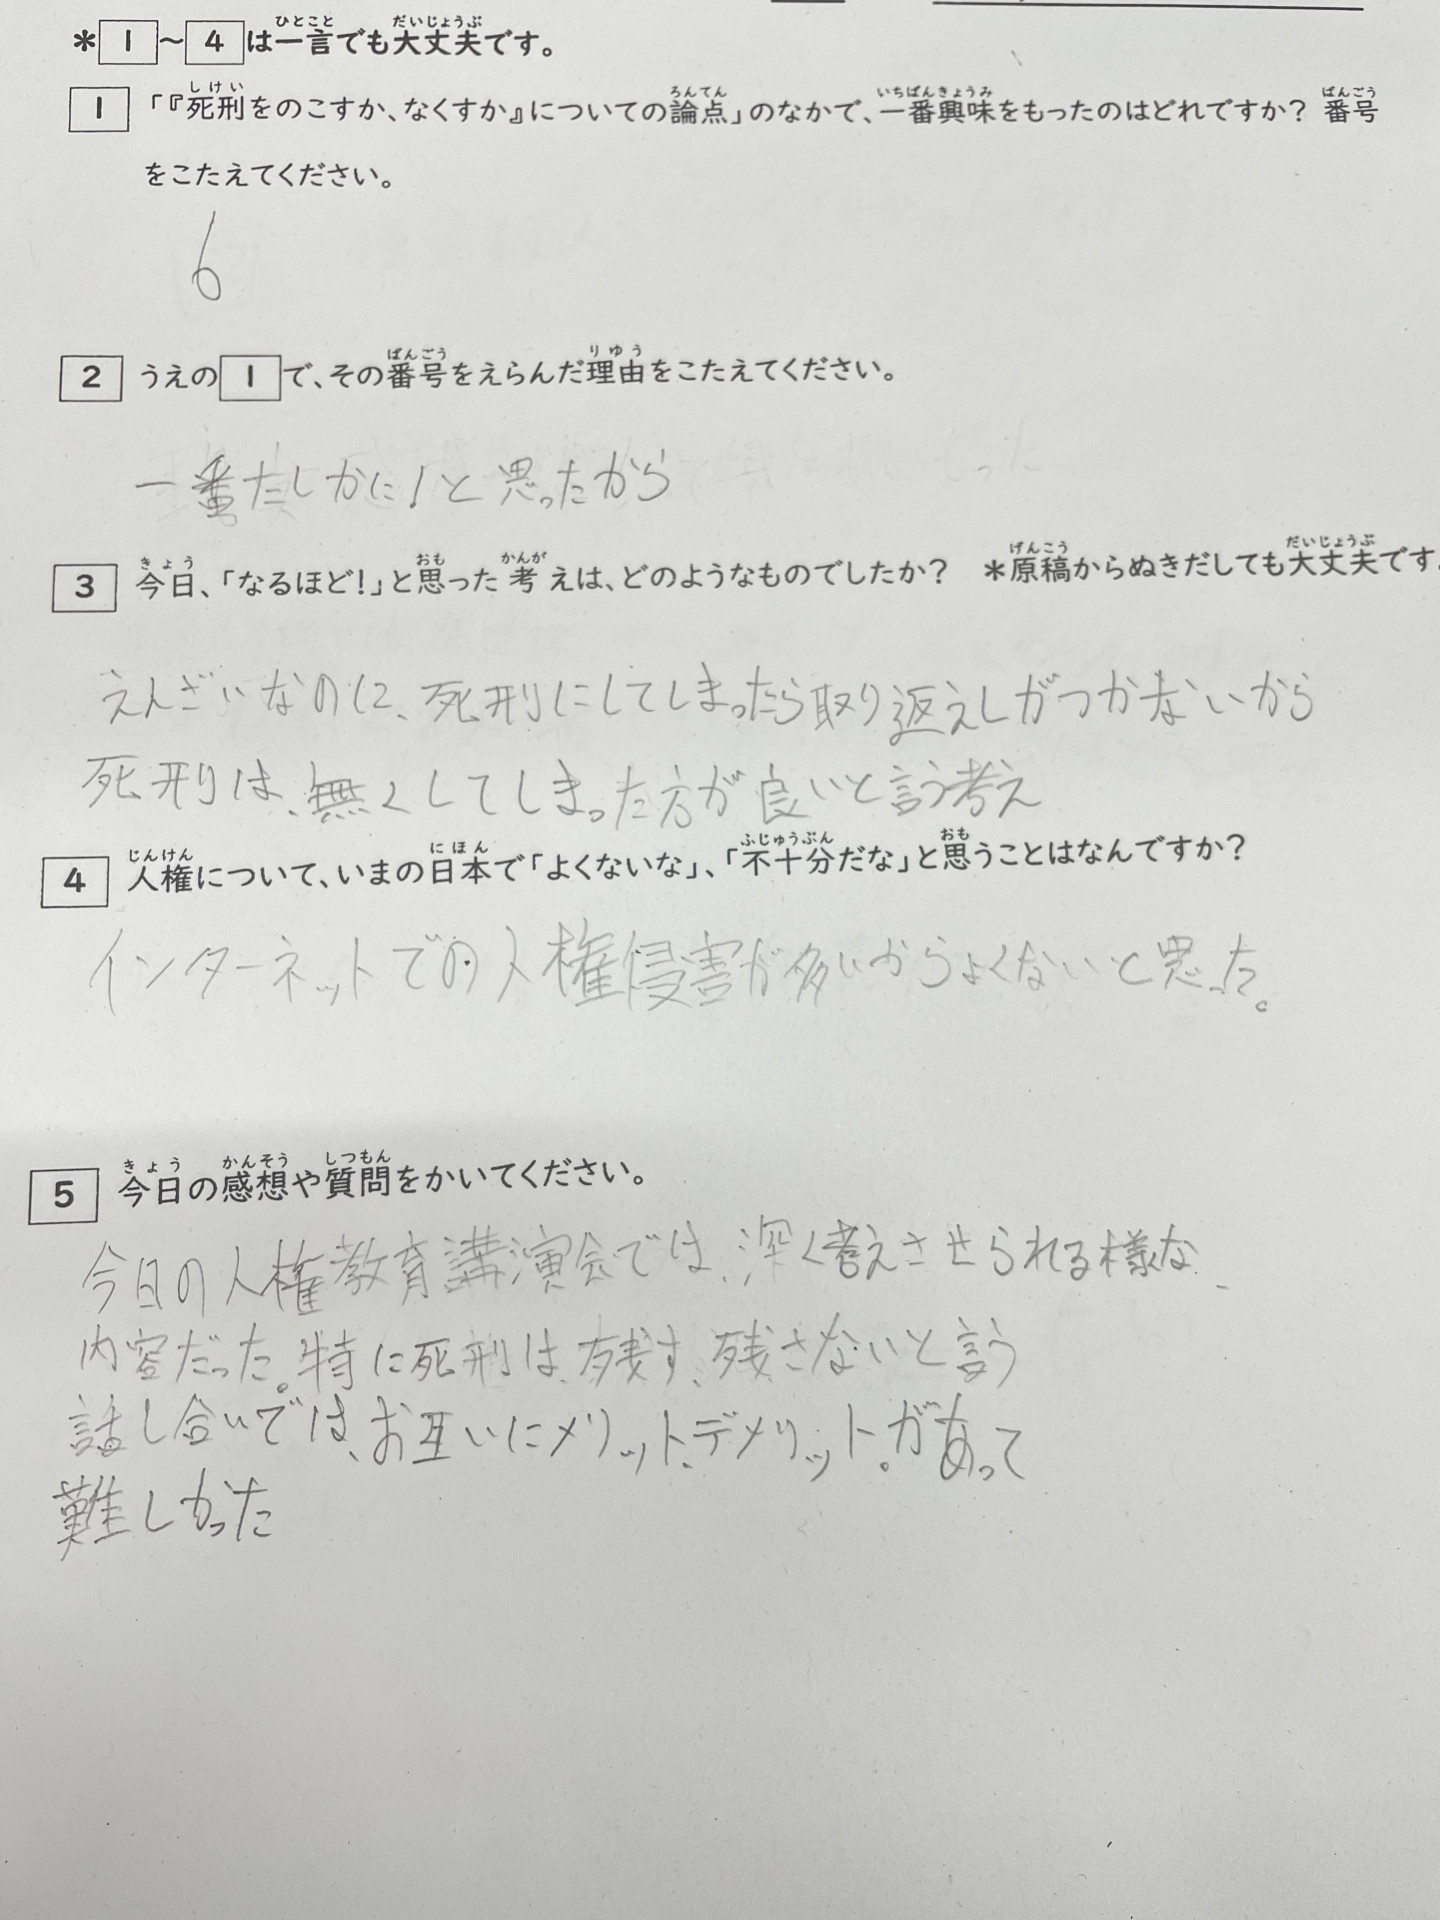 ＊1～4は一言でも大丈夫です。
1 「『死刑をのこすか、なくすか』についての論点」のなかで、一番興味をもったのはどれですか？ 番号
をこたえてください。
6
2 うえの1で、その番号をえらんだ理由をこたえてください。
一番たしかに!と思ったから
3 今日、「なるほど！」と思った考えは、どのようなものでしたか？ ＊原稿からぬきだしても大丈夫です。
えんざいなのに、死刑にしてしまったら取り返えしがつかないから
死刑は、無くしてしまった方が良いと言う考え
4 人権について、いまの日本で「よくないな」、「不十分だな」と思うことはなんですか？
インターネットでの人権侵害が多いからよくないと思った。
5 今日の感想や質問をかいてください。
今日の人権教育講演会では、深く考えさせられる様な
内容だった。特に死刑は、残す、残さないと言う
話し合いでは、お互いにメリット、デメリット。があって
難しかった